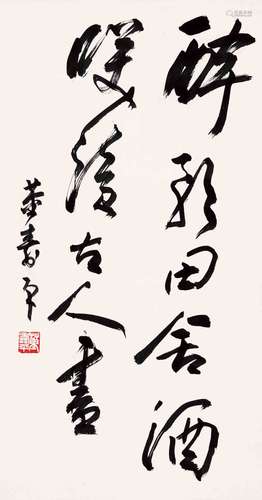 醉歌田舍酒
咲读古人書
董寿平